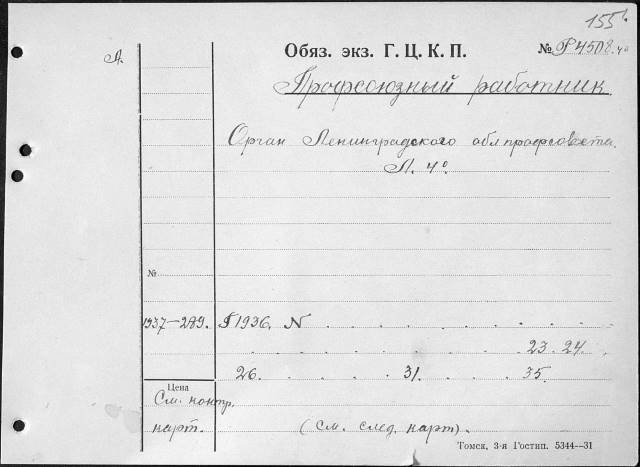 155
А.
Обяз. экз. Г. Ц. К. П.
№ Р4508.4°
Профсоюзный работник
Орган Ленинградского облпрофсовета.
Л. 4°.
№
1937—289. Г 1936. N . . . . . . . .
. . . . . . 23. 24.
26. . . . 31. . . 35.
Цена
См. контр.
карт.
(См. след. карт).
Томск, 3-я Гостип. 5344—31